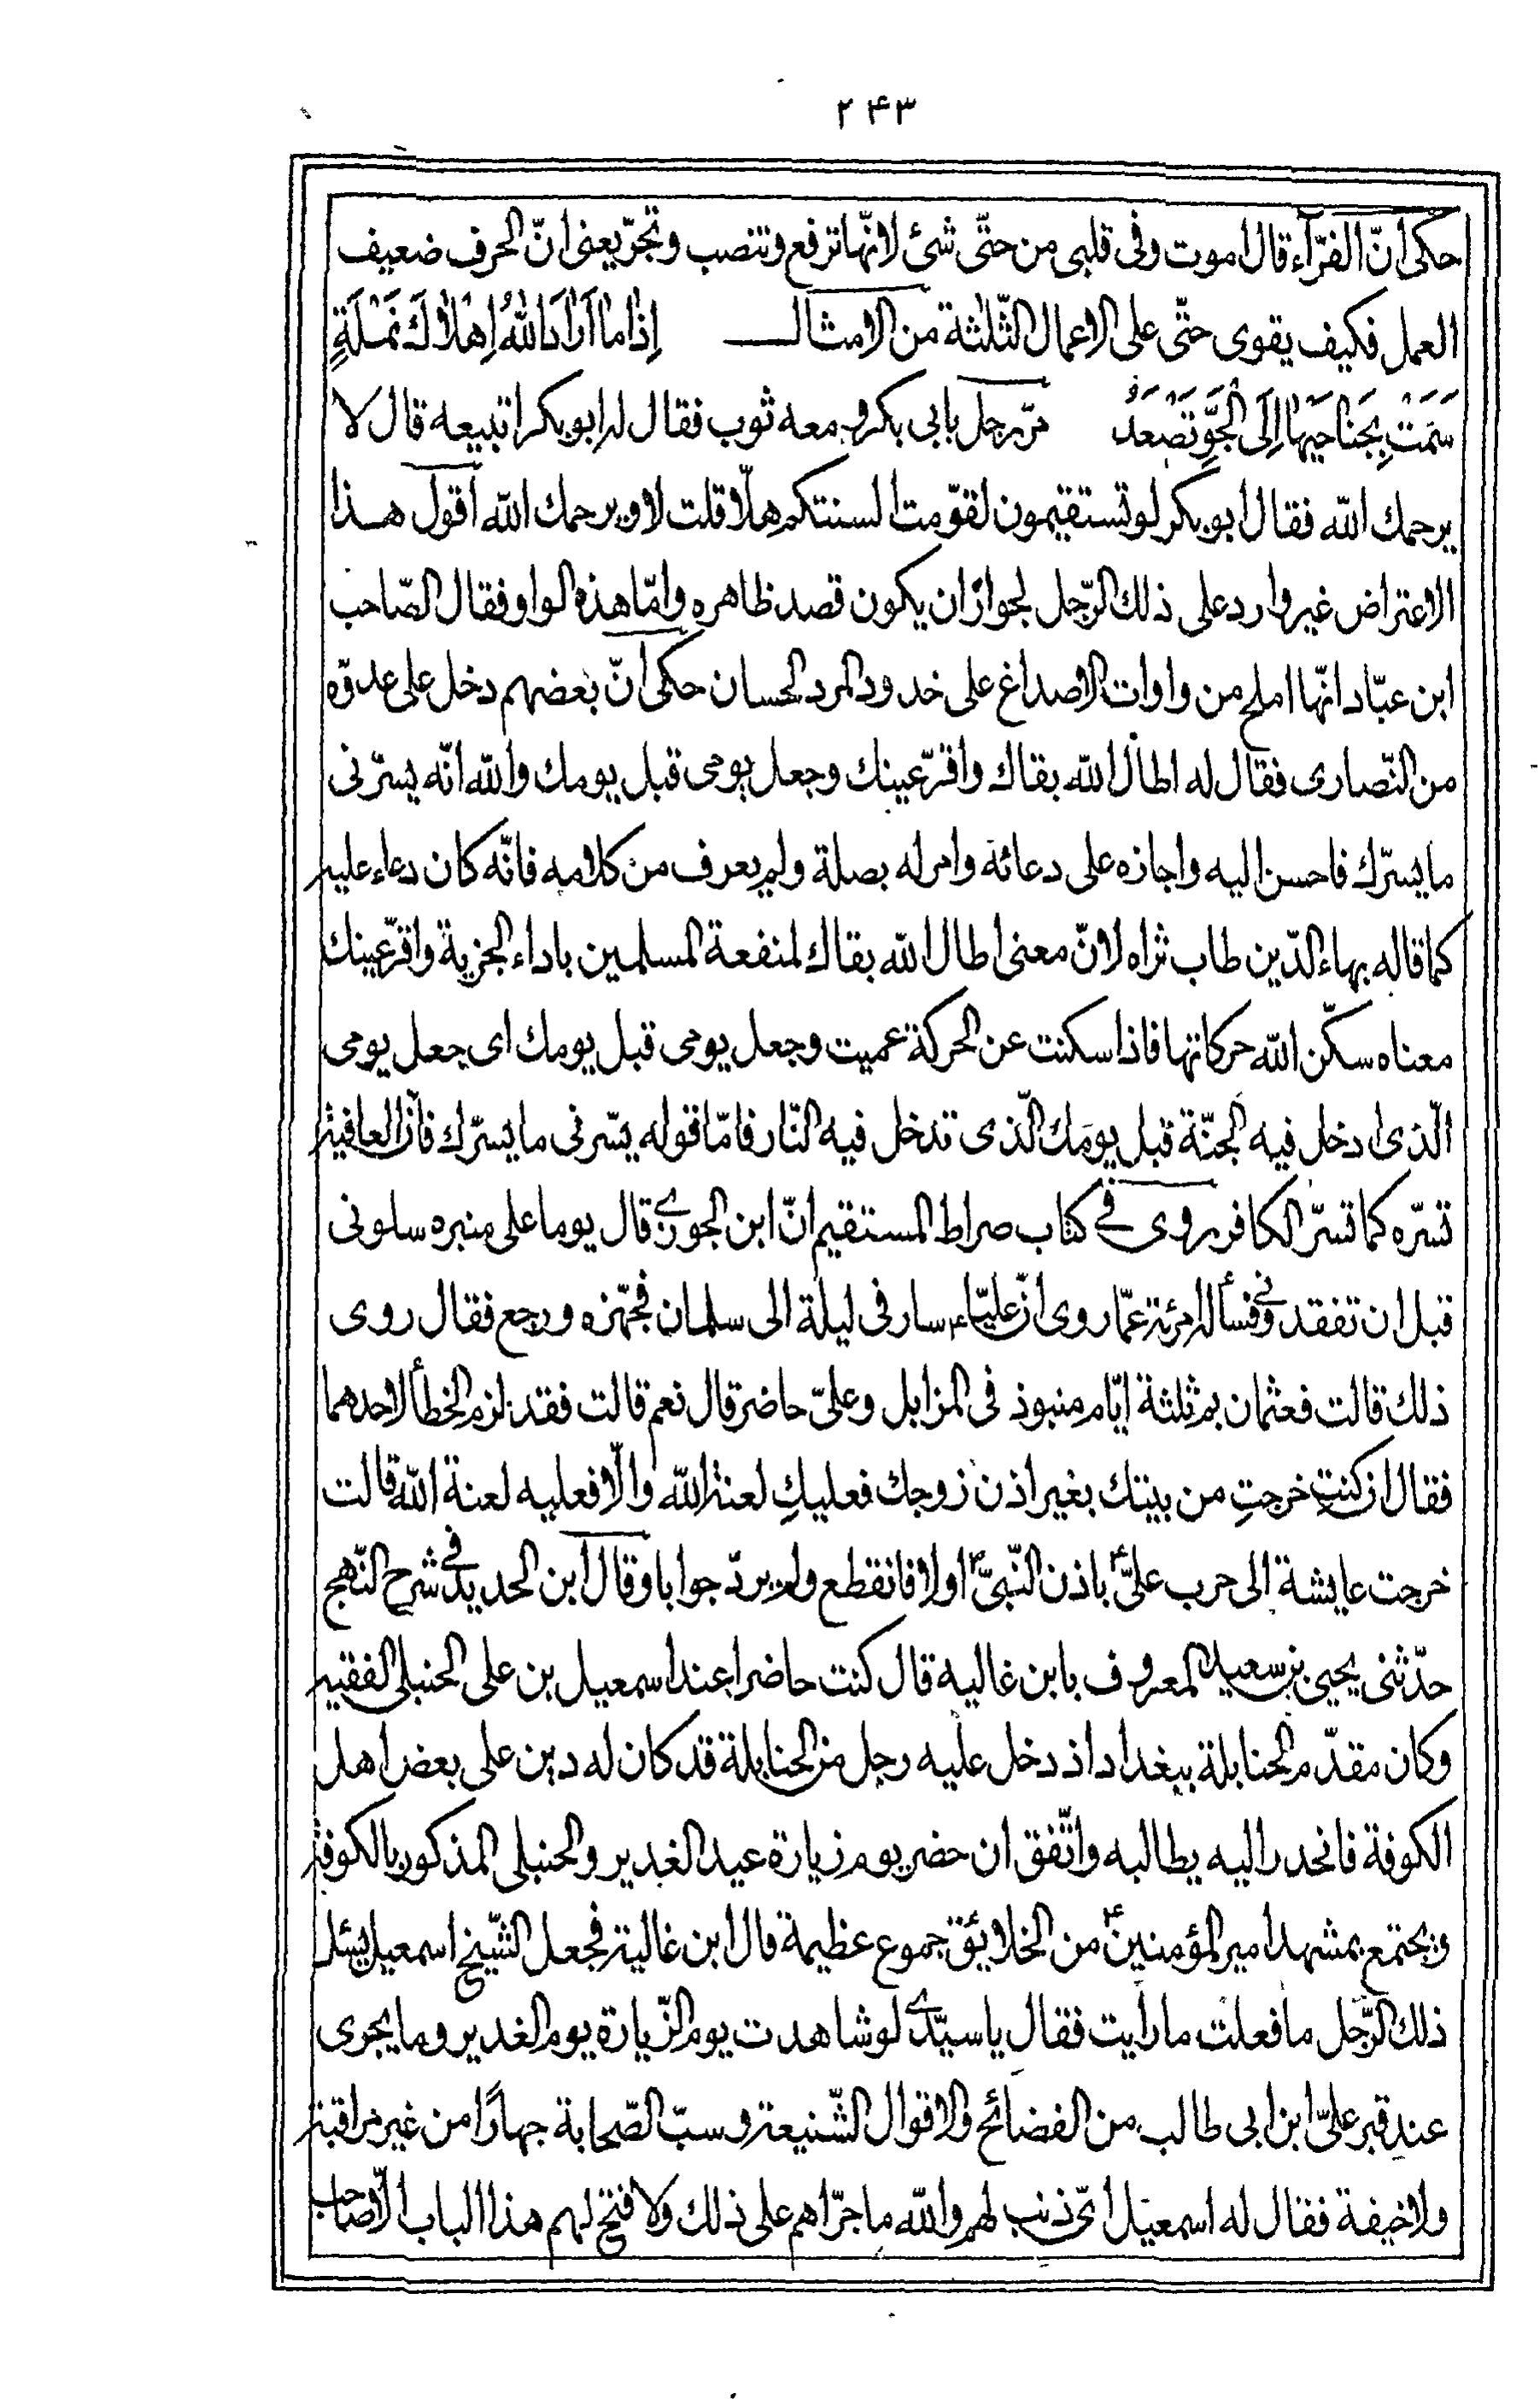 ٢۴٣
حكى انّ الفرّآء قال اموت وفى قلبى من حتّى شئ لانّها ترفع وتنصب وتجرّ يعنى انّ الحرف ضعيف
العمل فكيف يقوى حتّى على الاعمال الثّلثة من الامثال اِذا ما اَرادَ اللهُ اِهْلاكَ نَمْلَةٍ
سَمَتْ بِجَناحَيْها اِلَى الْجَوِّ تَصْعَدُ مرّ رجل بابى بكر و معه ثوب فقال له ابو بكر اتبيعه قال لا
يرحمك الله فقال ابو بكر لو تستقيمون لقوّمت السنتكم هلّا قلت لا و يرحمك الله اقول هذا
الاعتراض غير وارد على ذلك الرّجل لجواز ان يكون قصد ظاهره وامّا هذه الواو فقال الصّاحب
ابن عبّاد انّها املح من واوات الاصداغ على خدود المرد الحسان حكى انّ بعضهم دخل على عدوّه
من النّصارى فقال له اطال الله بقاك واقرّ عينك وجعل يومى قبل يومك والله انّه يسرّنى
ما يسرّك فاحسن اليه واجازه على دعائه وامر له بصلة ولم يعرف من كلامه فانّه كان دعاء عليه
كما قاله بهاء الدّين طاب ثراه لانّ معنى اطال الله بقاك لمنفعة المسلمين باداء الجزية واقرّ عينك
معناه سكّن الله حركاتها فاذا سكنت عن الحركة عميت وجعل يومى قبل يومك اى جعل يومى
الّذى ادخل فيه الجنّة قبل يومك الّذى تدخل فيه النّار فامّا قوله يسّرنى ما يسرّك فانّ العافية
تسرّه كما تسرّ الكافر روى فى كتاب صراط المستقيم انّ ابن الجوزى قال يوما على منبره سلونى
قبل ان تفقدونى فسأله امرئة عمّا روى انّ عليّاء سار فى ليلة الى سلمان فجهّزه و رجع فقال روى
ذلك قالت فعثمان بم ثلثة ايّام منبوذ فى المزابل وعلىّ حاضر قال نعم قالت فقد لزم الخطأ لاحدهما
فقال ان كنتِ خرجتِ من بيتك بغير اذن زوجك فعليكِ لعنة الله والّا فعليه لعنة الله قالت
خرجت عايشة الى حرب علىّ باذن النّبىّ اولا فانقطع ولم يردّ جوابا وقال ابن الحديد فى شرح النّهج
حدّثنى يحيى بن سعيد المعروف بابن غاليه قال كنت حاضرا عند اسمعيل بن على الحنبلى الفقيه
وكان مقدّم الحنابلة ببغداد اذ دخل عليه رجل من الحنابلة قد كان له دين على بعض اهل
الكوفة فانحدر اليه يطالبه واتّفق ان حضر يوم زيارة عيد الغدير والحنبلى المذكور بالكوفة
ويجتمع بمشهد امير المؤمنينء من الخلايئق جموع عظيمة قال ابن غالية فجعل الشّيخ اسمعيل يسئل
ذلك الرّجل ما فعلت ما رايت فقال يا سيّدى لو شاهدت يوم الزّيارة يوم الغدير وما يجرى
عند قبر علىّ ابن ابى طالب من الفضائح والاقوال الشّنيعة وسبّ الصّحابة جهارًا من غير مراقبة
ولا خيفة فقال له اسمعيل اىّ ذنب لهم والله ما جرّاهم على ذلك ولا فتح لهم هذا الباب الّا صاحب